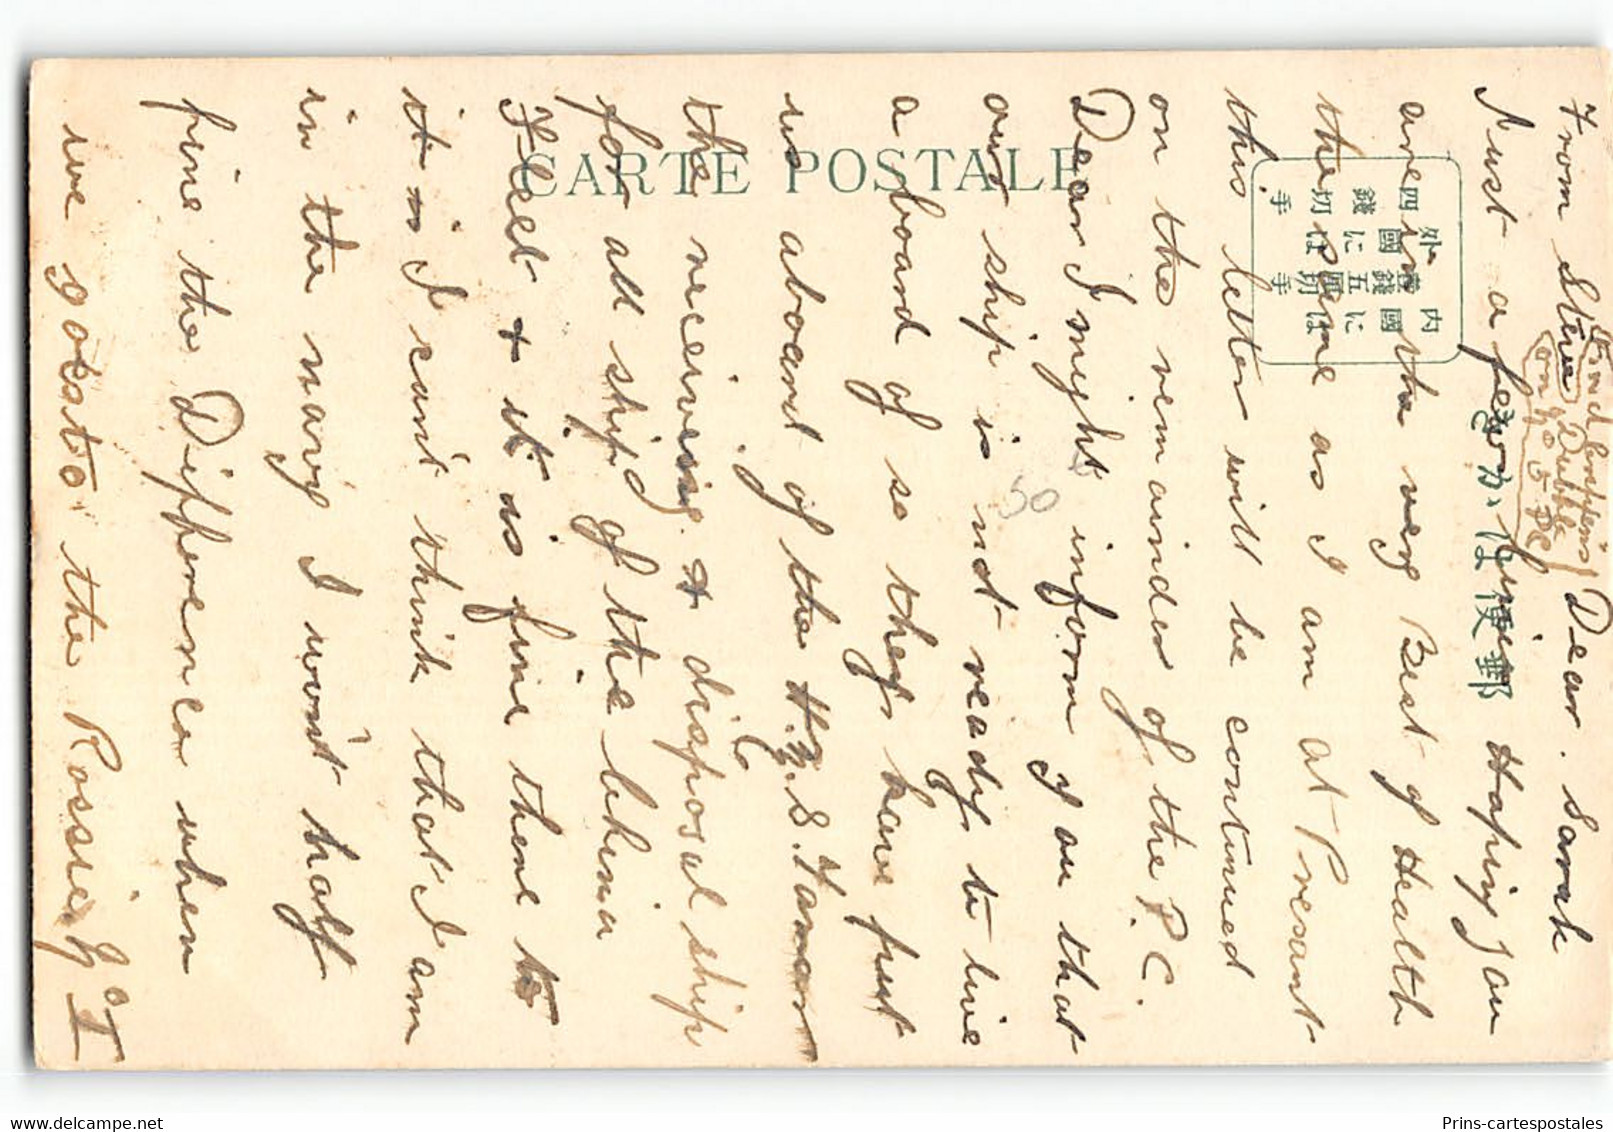 From Steve Dear. Sarah
Just a few lines Hoping you
are in the very Best of Health
the same as I am at Presant
this letter will be continued
on the remainder of the P.C.
Dear I might inform you that
our ship is not ready to live
a board of so they have put
us aboard of the H.M.S. Tamar
the receiving & disposal ship
for all ship's of the China
Fleet & it is fine there to
it is I cant think that I am
in the navy I won't half
fine the Difference when
we goes to the Rossie
No I
on
P.C
50
CARTE POSTALE
郵便はかき
內國に五厘切手
外國に四錢切手
Prins-cartespostales